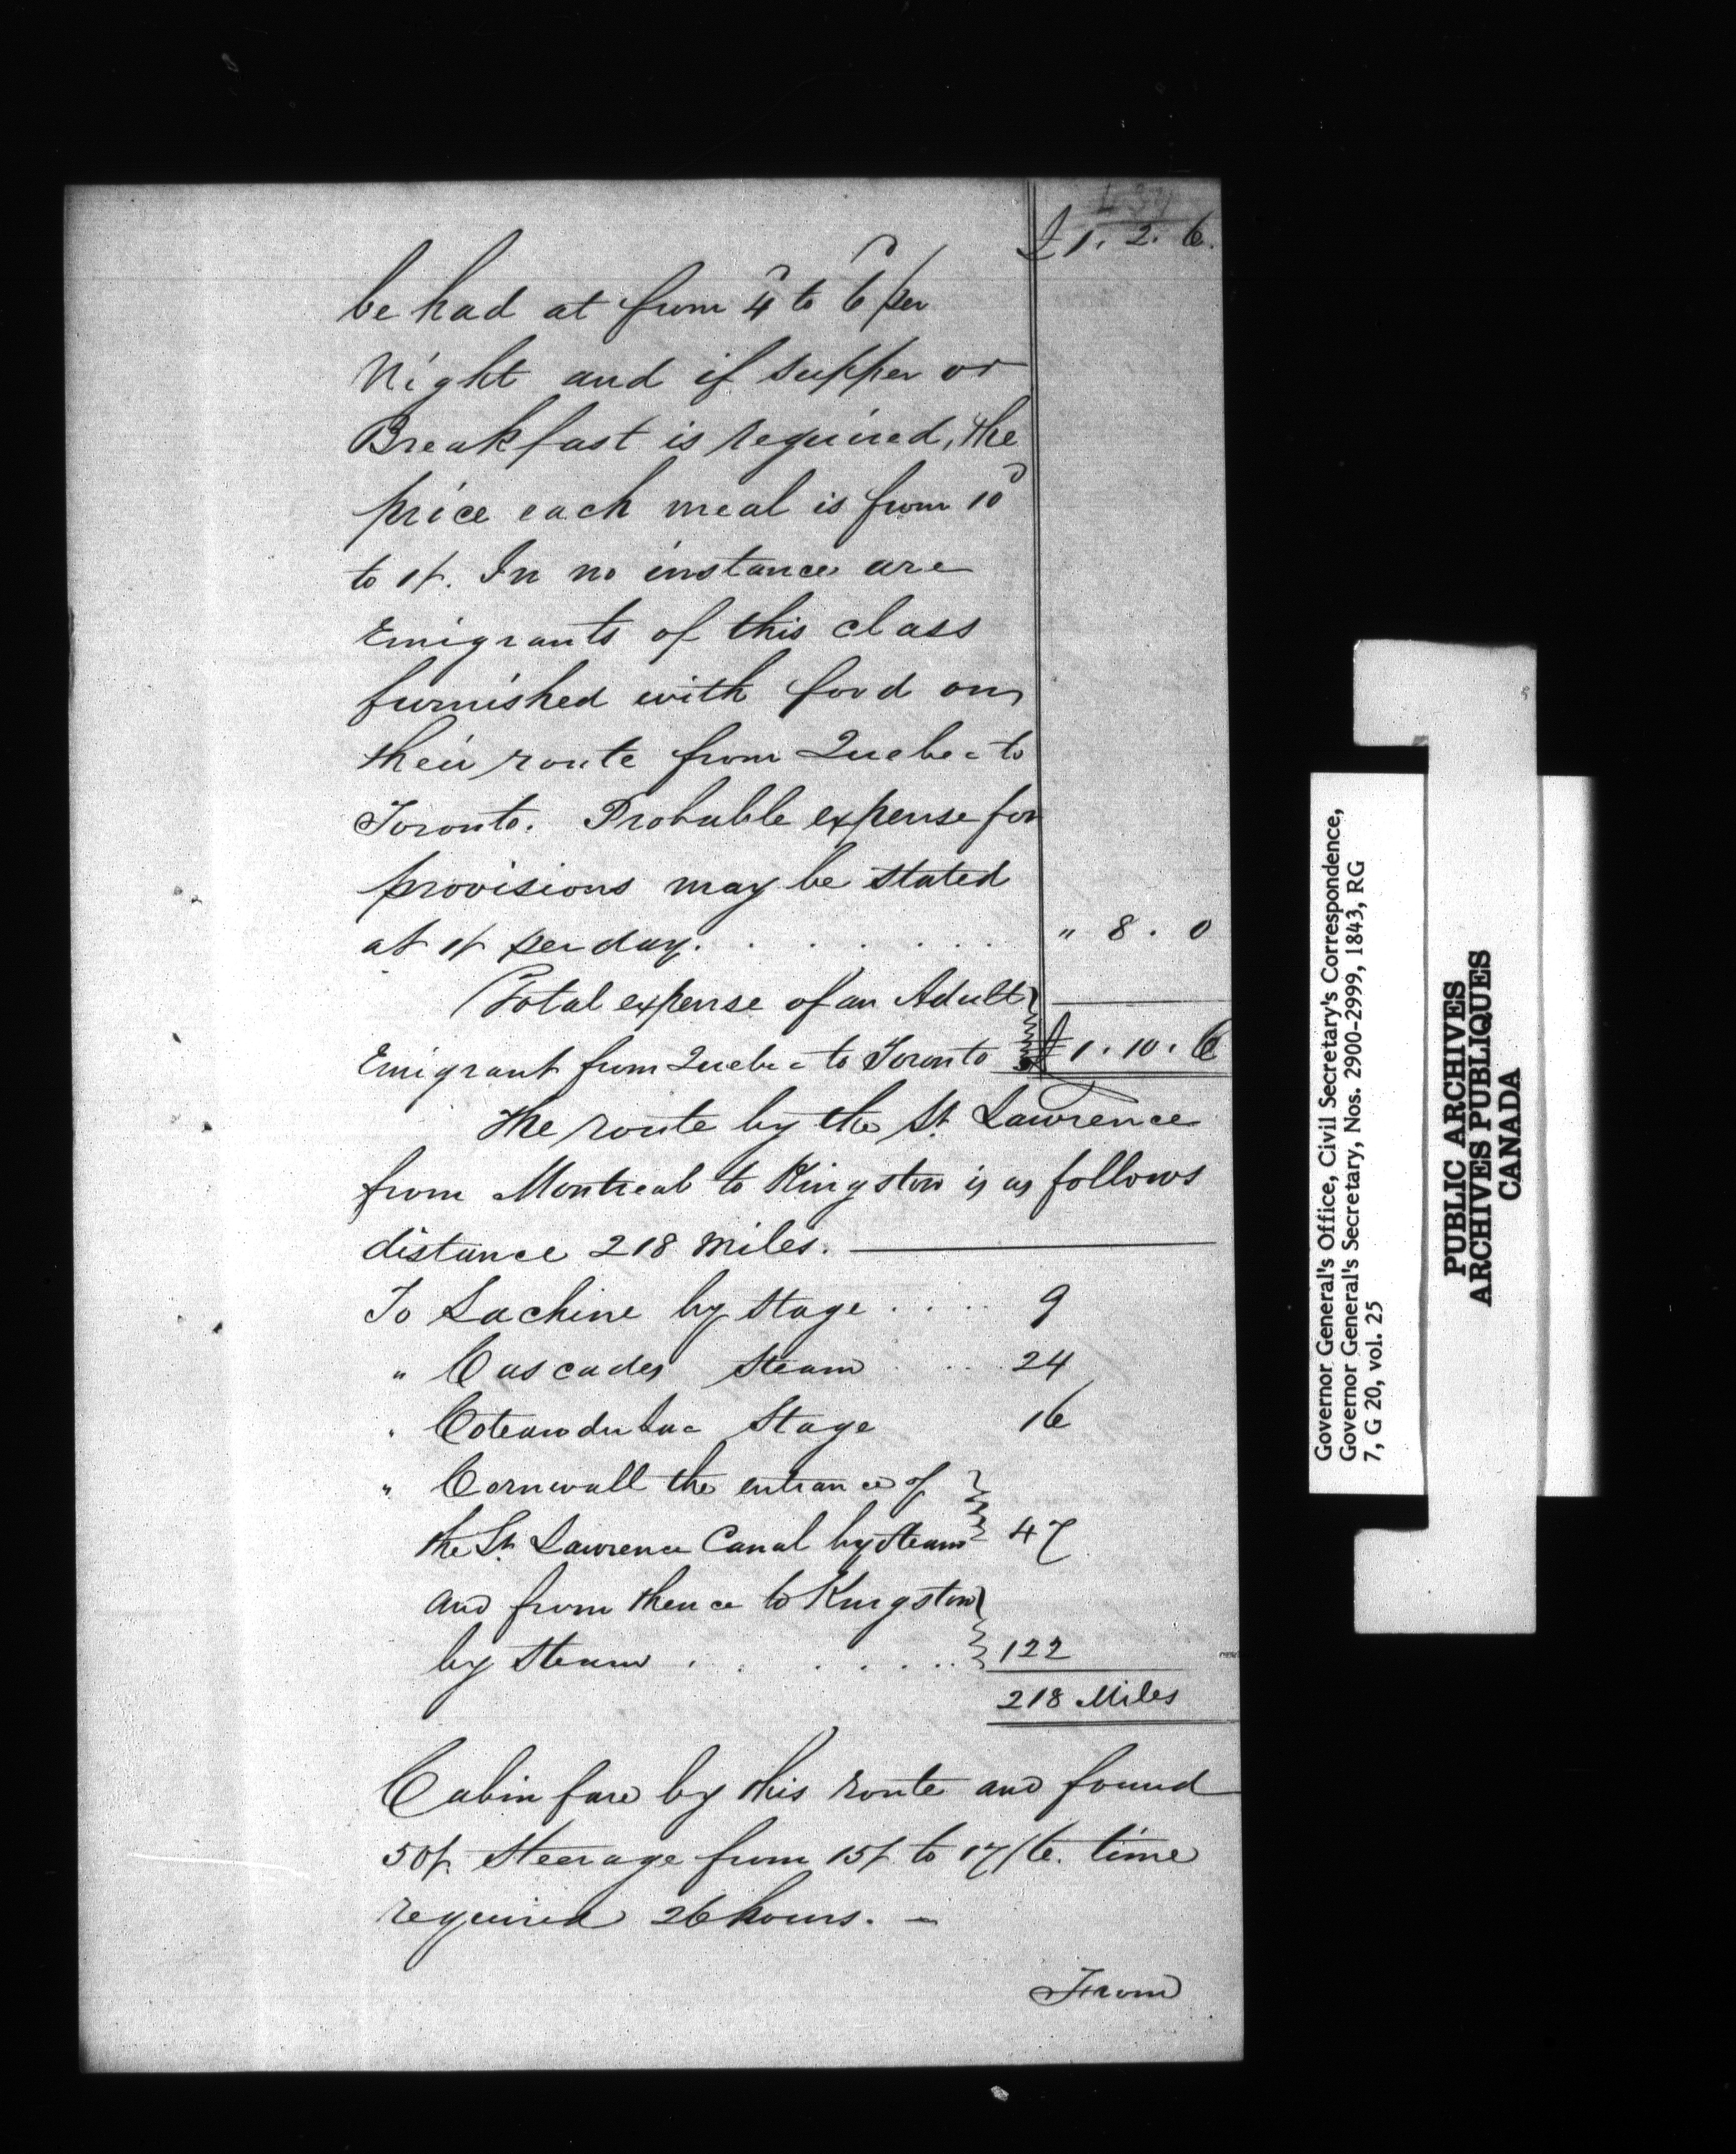 £1. 2. 6.
be had at from 4d to 6d per
Night and if supper or
Breakfast is required, the
price each meal is from 10d
to 1/. In no instance are
Emigrants of this class
furnished with food on
their route from Quebec to
Toronto. Probable expense for
provisions may be stated
at 1/ per day. . . . . . . " 8. 0
Total expense of an Adult
Emigrant from Quebec to Toronto £1. 10. 6
The route by the St. Lawrence
from Montreal to Kingston is as follows
distance 218 Miles.
To Lachine by Stage . . . . 9
" Cascades Steam . . . 24
" Coteau du Lac Stage 16
" Cornwall the entrance of
the St. Lawrence Canal by Steam 47
and from thence to Kingston
by Steam . . . . . . . 122
218 Miles
Cabin fare by this route and found
50/. Steerage from 15/. to 17/6. time
required 26 hours. –
From
Governor General's Office, Civil Secretary's Correspondence,
Governor General's Secretary, Nos. 2900-2999, 1843, RG
7, G 20, vol. 25
PUBLIC ARCHIVES
ARCHIVES PUBLIQUES
CANADA